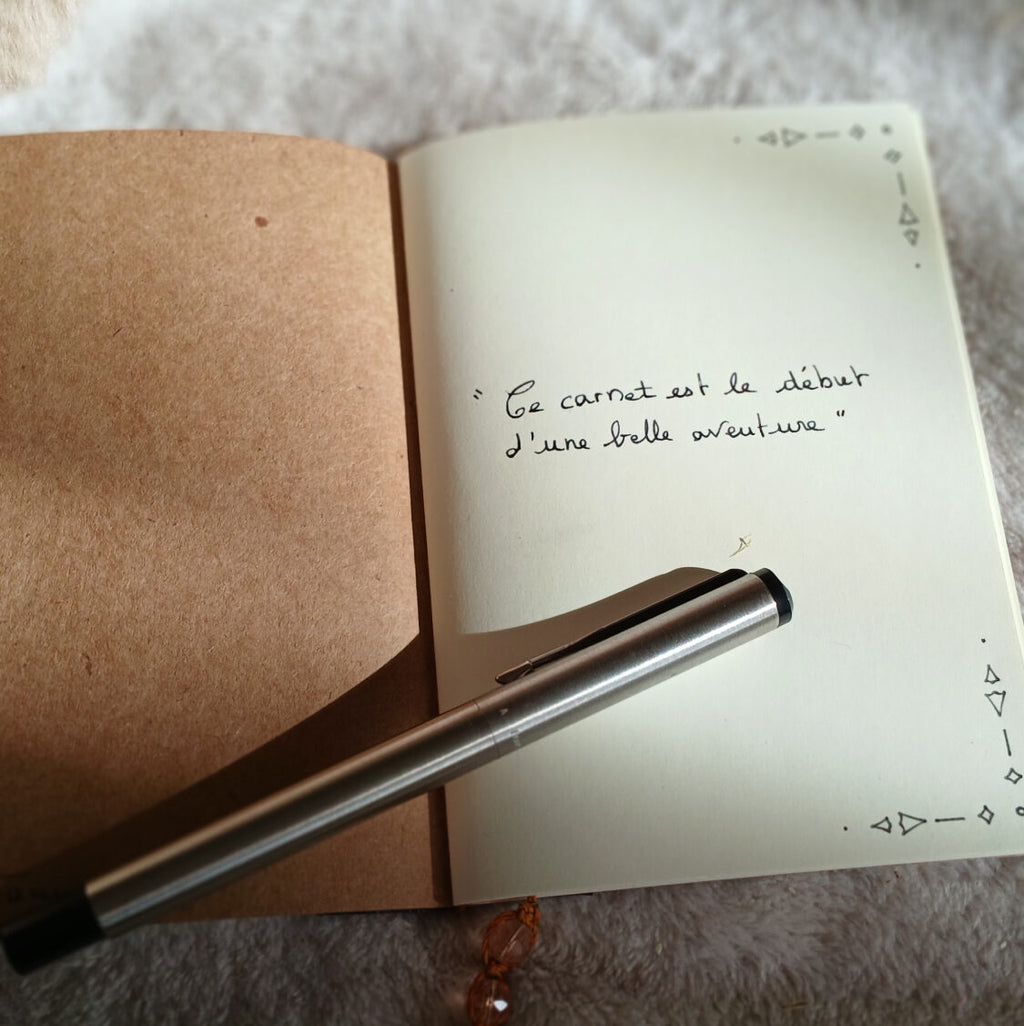 " Ce carnet est le début
d'une belle aventure "